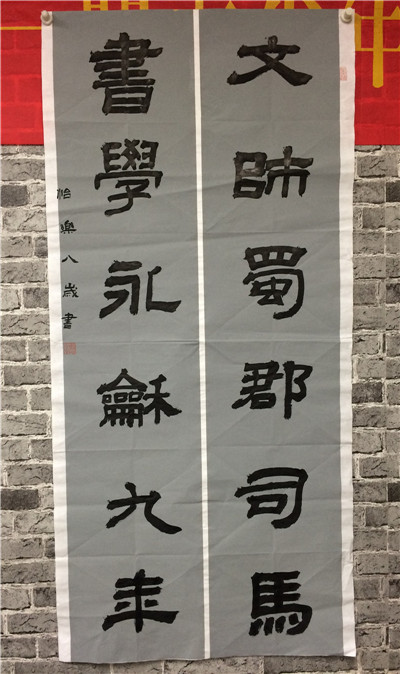 文師蜀郡司馬
書學永龢九年
怡樂八歲書